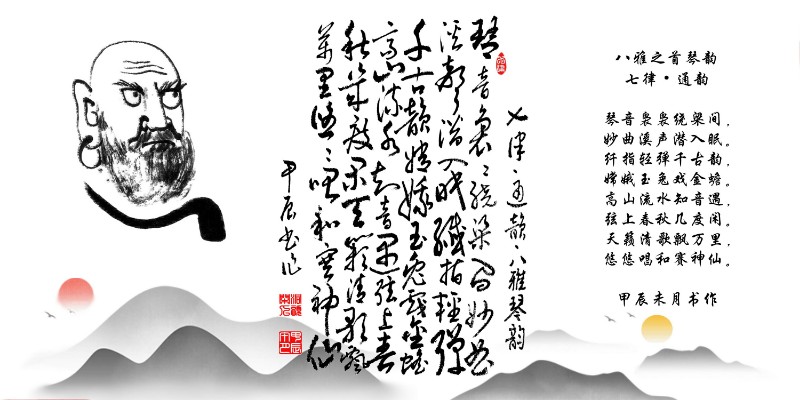 八雅之首琴韵
七律·通韵
琴音袅袅绕梁间，
妙曲溪声潜入眠。
纤指轻弹千古韵，
嫦娥玉兔戏金蟾。
高山流水知音遇，
弦上春秋几度闲。
天籁清歌飘万里，
悠悠唱和赛神仙。
甲辰未月书作
七律·通韵·八雅琴韵
琴音袅〻绕梁间妙曲
溪声潜入眠纤指轻弹
千古韵嫦娥玉兔戏金蟾
高山流水知音遇弦上春
秋几度闲天籁清歌飘
万里悠〻唱和赛神仙
甲辰书作